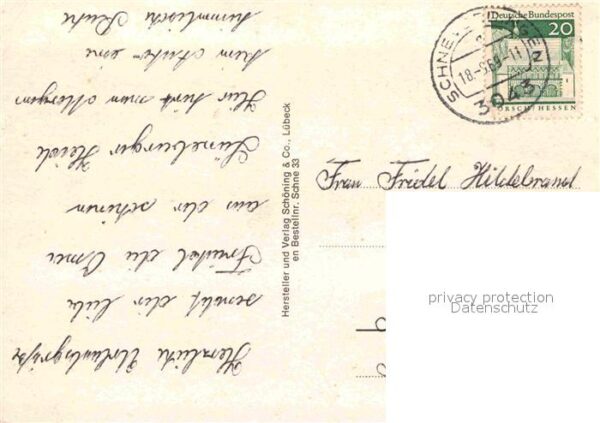 Herzliche Urlaubsgrüße
sendet dir liebe
Friedel die Omi
aus der schönen
Lüneburger Heide
Hier hört man Morgen
kein Auto
himmlische Ruhe
Hersteller und Verlag Schöning & Co., Lübeck
en Bestellnr. Schne 33
Deutsche Bundespost
20
ORSCH/HESSEN
18.-9.69-11
3043
Frau Friedel Hildebrand
privacy protection
Datenschutz